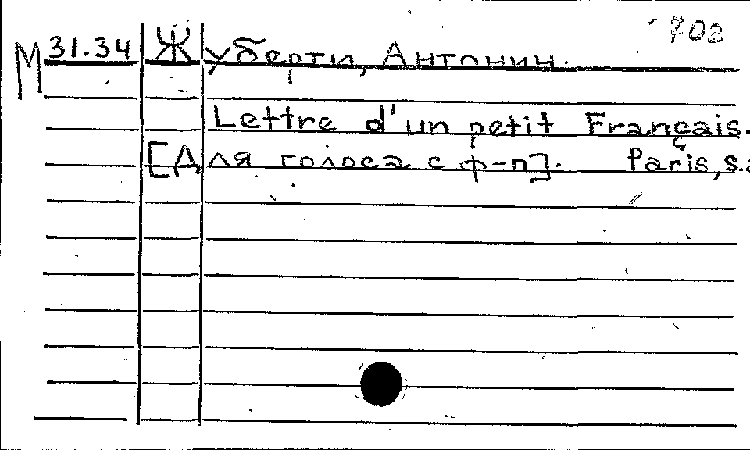 702
М 31.34 Жуберти, Антонин.
Lettre d'un petit Français.
[Для голоса с ф-п]. Paris, s.a